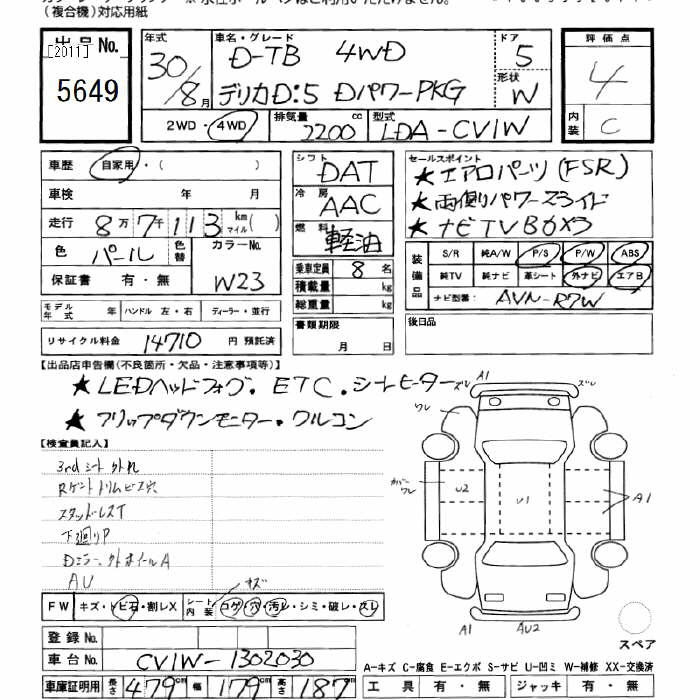 (複合機)対応用紙
出品No.
[2011]
5649
年式
30/8月
車名・グレード
D-TB 4WD
デリカD:5 DパワーPKG
ドア
5
形状
W
2WD・4WD
排気量 2200 cc
型式 LDA-CV1W
評価点
4
内装
C
車歴 自家用・( )
車検 年 月
走行 8万7千113 km マイル( )
色 パール 色替 カラーNo. W23
保証書 有・無
シフト DAT
冷房 AAC
燃料 軽油
乗車定員 8名
積載量 kg
総重量 kg
セールスポイント
★エアロパーツ(FSR)
★両側パワースライド
★ナビTV
装備品 S/R 純A/W P/S P/W ABS
純TV 純ナビ 革シート 外ナビ エアB
ナビ型番: AVN-R7W
モデル年式 年 ハンドル 左・右 ディーラー・並行
リサイクル料金 14710 円 預託済
書類期限
月 日
後日品
【出品店申告欄(不良箇所・欠品・注意事項等)】
★LEDヘッドフォグ.ETC.シートヒーター
★フリップダウンモニター・ワルコン
【検査員記入】
3rdシート外れ
Rゲートトリムビス穴
スタッドレスT
下廻りP
Dミラー、外ホイールA
AU
キズ
FW キズ・トビ石・割レX シート内装 コゲ・穴・汚レ・シミ・破レ・スレ
A1
ズレ
ズレ
ワレ
カバーワレ
U2
U1
A1
A1
AU2
スペア
登録No.
車台No. CV1W-1302030
車庫証明用 長さ 479cm 幅 179cm 高さ 187cm
A-キズ C-腐食 E-エクボ S-サビ U-凹ミ W-補修 XX-交換済
工具 有・無 ジャッキ 有・無